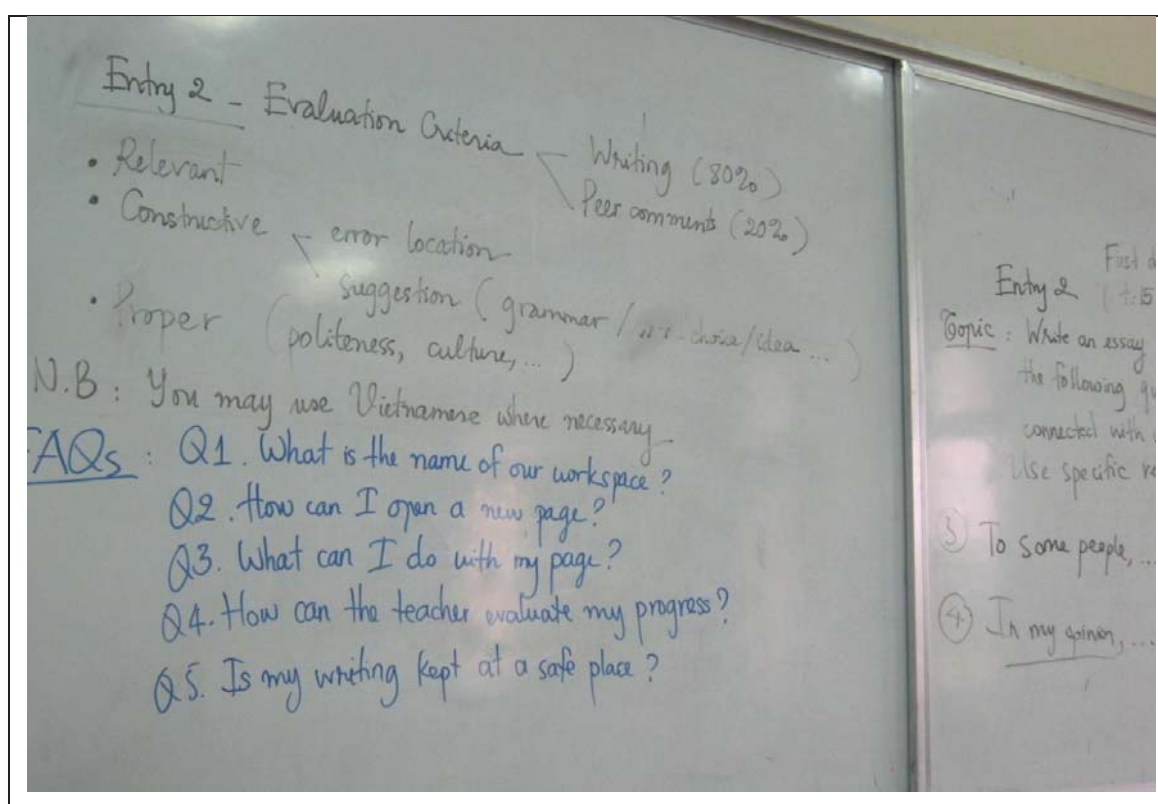 Entry 2 - Evaluation Criteria
Writing (80%)
Peer comments (20%)
• Relevant
• Constructive
error location
suggestion (grammar / choice/idea...)
• Proper (politeness, culture,...)
N.B: You may use Vietnamese where necessary.
FAQs: Q1. What is the name of our workspace?
Q2. How can I open a new page?
Q3. What can I do with my page?
Q4. How can the teacher evaluate my progress?
Q5. Is my writing kept at a safe place?
First
Entry 2
Topic: Write an essay
the following
connected with
Use specific
3 To some people,...
4. In my opinion,...